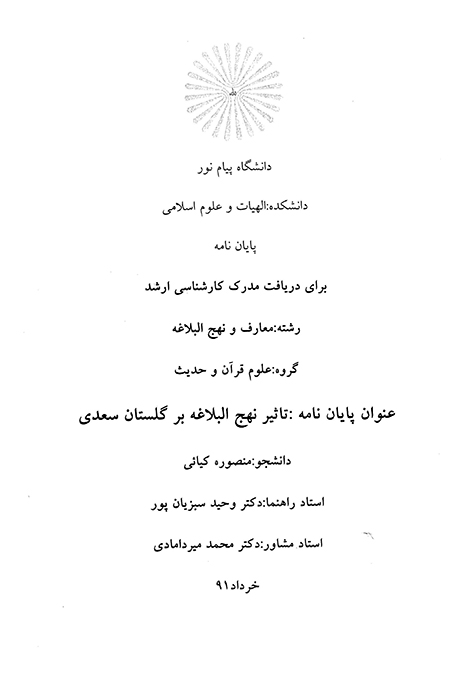 دانشگاه پیام نور
دانشکده:الهیات و علوم اسلامی
پایان نامه
برای دریافت مدرک کارشناسی ارشد
رشته:معارف و نهج البلاغه
گروه:علوم قرآن و حدیث
عنوان پایان نامه :تاثیر نهج البلاغه بر گلستان سعدی
دانشجو:منصوره کیائی
استاد راهنما:دکتر وحید سبزیان پور
استاد مشاور:دکتر محمد میردامادی
خرداد۹۱